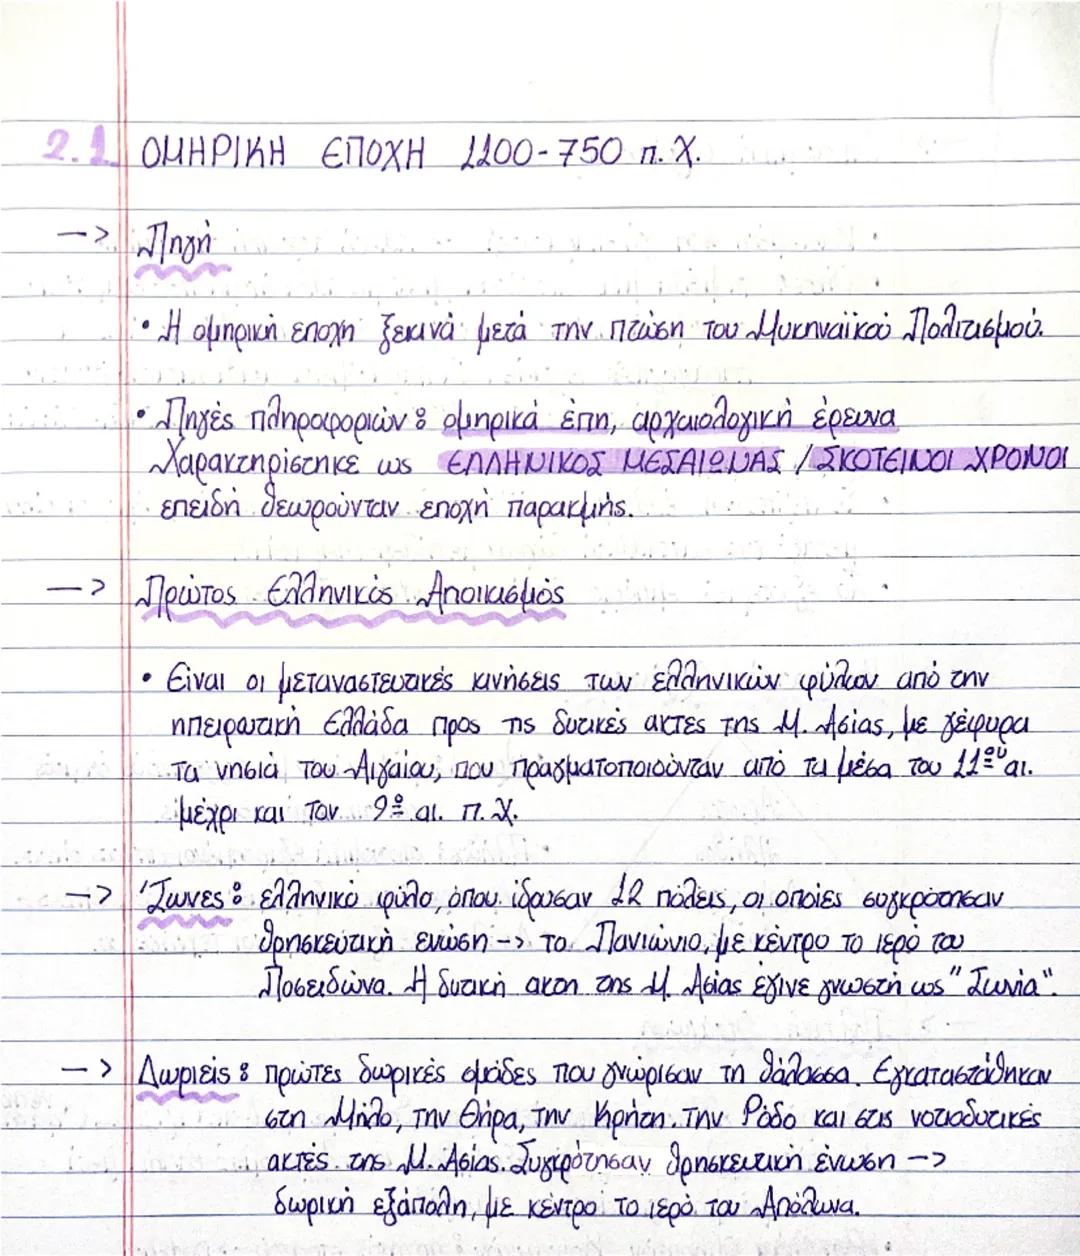 2.1 ΟΜΗΡΙΚΗ ΕΠΟΧΗ 1100-750 π.Χ.
-> Πηγή
• Η ομηρική εποχή ξεκινά μετά την πτώση του Μυκηναϊκού Πολιτισμού.
• Πηγές πληροφοριών: ομηρικά έπη, αρχαιολογική έρευνα
Χαρακτηρίστηκε ως ΕΛΛΗΝΙΚΟΣ ΜΕΣΑΙΩΝΑΣ / ΣΚΟΤΕΙΝΟΙ ΧΡΟΝΟΙ
επειδή θεωρούνταν εποχή παρακμής.
-> Πρώτος Ελληνικός Αποικισμός
• Είναι οι μεταναστευτικές κινήσεις των ελληνικών φύλων από την
ηπειρωτική Ελλάδα προς τις δυτικές ακτές της Μ. Ασίας, με γέφυρα
τα νησιά του Αιγαίου, που πραγματοποιούνταν από τα μέσα του 11ου αι.
μέχρι και τον 9ο αι. π.Χ.
-> Ίωνες: ελληνικό φύλο, όπου ίδρυσαν 12 πόλεις, οι οποίες συγκρότησαν
θρησκευτική ένωση -> το Πανιώνιο, με κέντρο το ιερό του
Ποσειδώνα. Η δυτική ακτή της Μ. Ασίας έγινε γνωστή ως "Ιωνία".
-> Δωριείς: πρώτες δωρικές ομάδες που γνώρισαν τη θάλασσα. Εγκαταστάθηκαν
στη Μήλο, την Θήρα, την Κρήτη. Την Ρόδο και στις νοτιοδυτικές
ακτές της Μ. Ασίας. Συγκρότησαν θρησκευτική ένωση ->
δωρική εξάπολη, με κέντρο το ιερό του Απόλωνα.